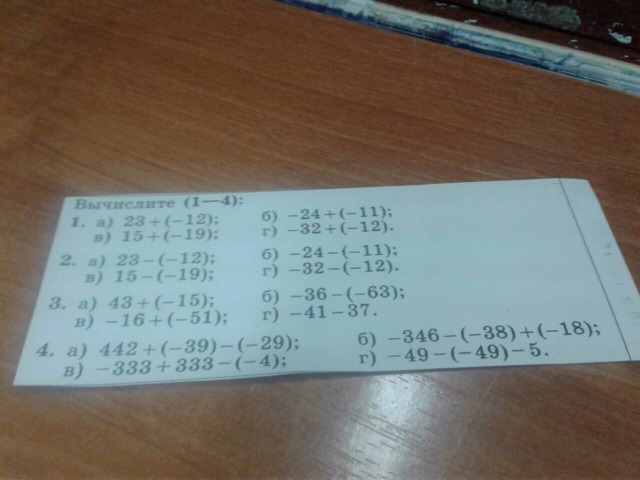 Вычислите (1—4):
1. а) 23+(−12); б) −24+(−11);
в) 15+(−19); г) −32+(−12).
2. а) 23−(−12); б) −24−(−11);
в) 15−(−19); г) −32−(−12).
3. а) 43+(−15); б) −36−(−63);
в) −16+(−51); г) −41−37.
4. а) 442+(−39)−(−29); б) −346−(−38)+(−18);
в) −333+333−(−4); г) −49−(−49)−5.